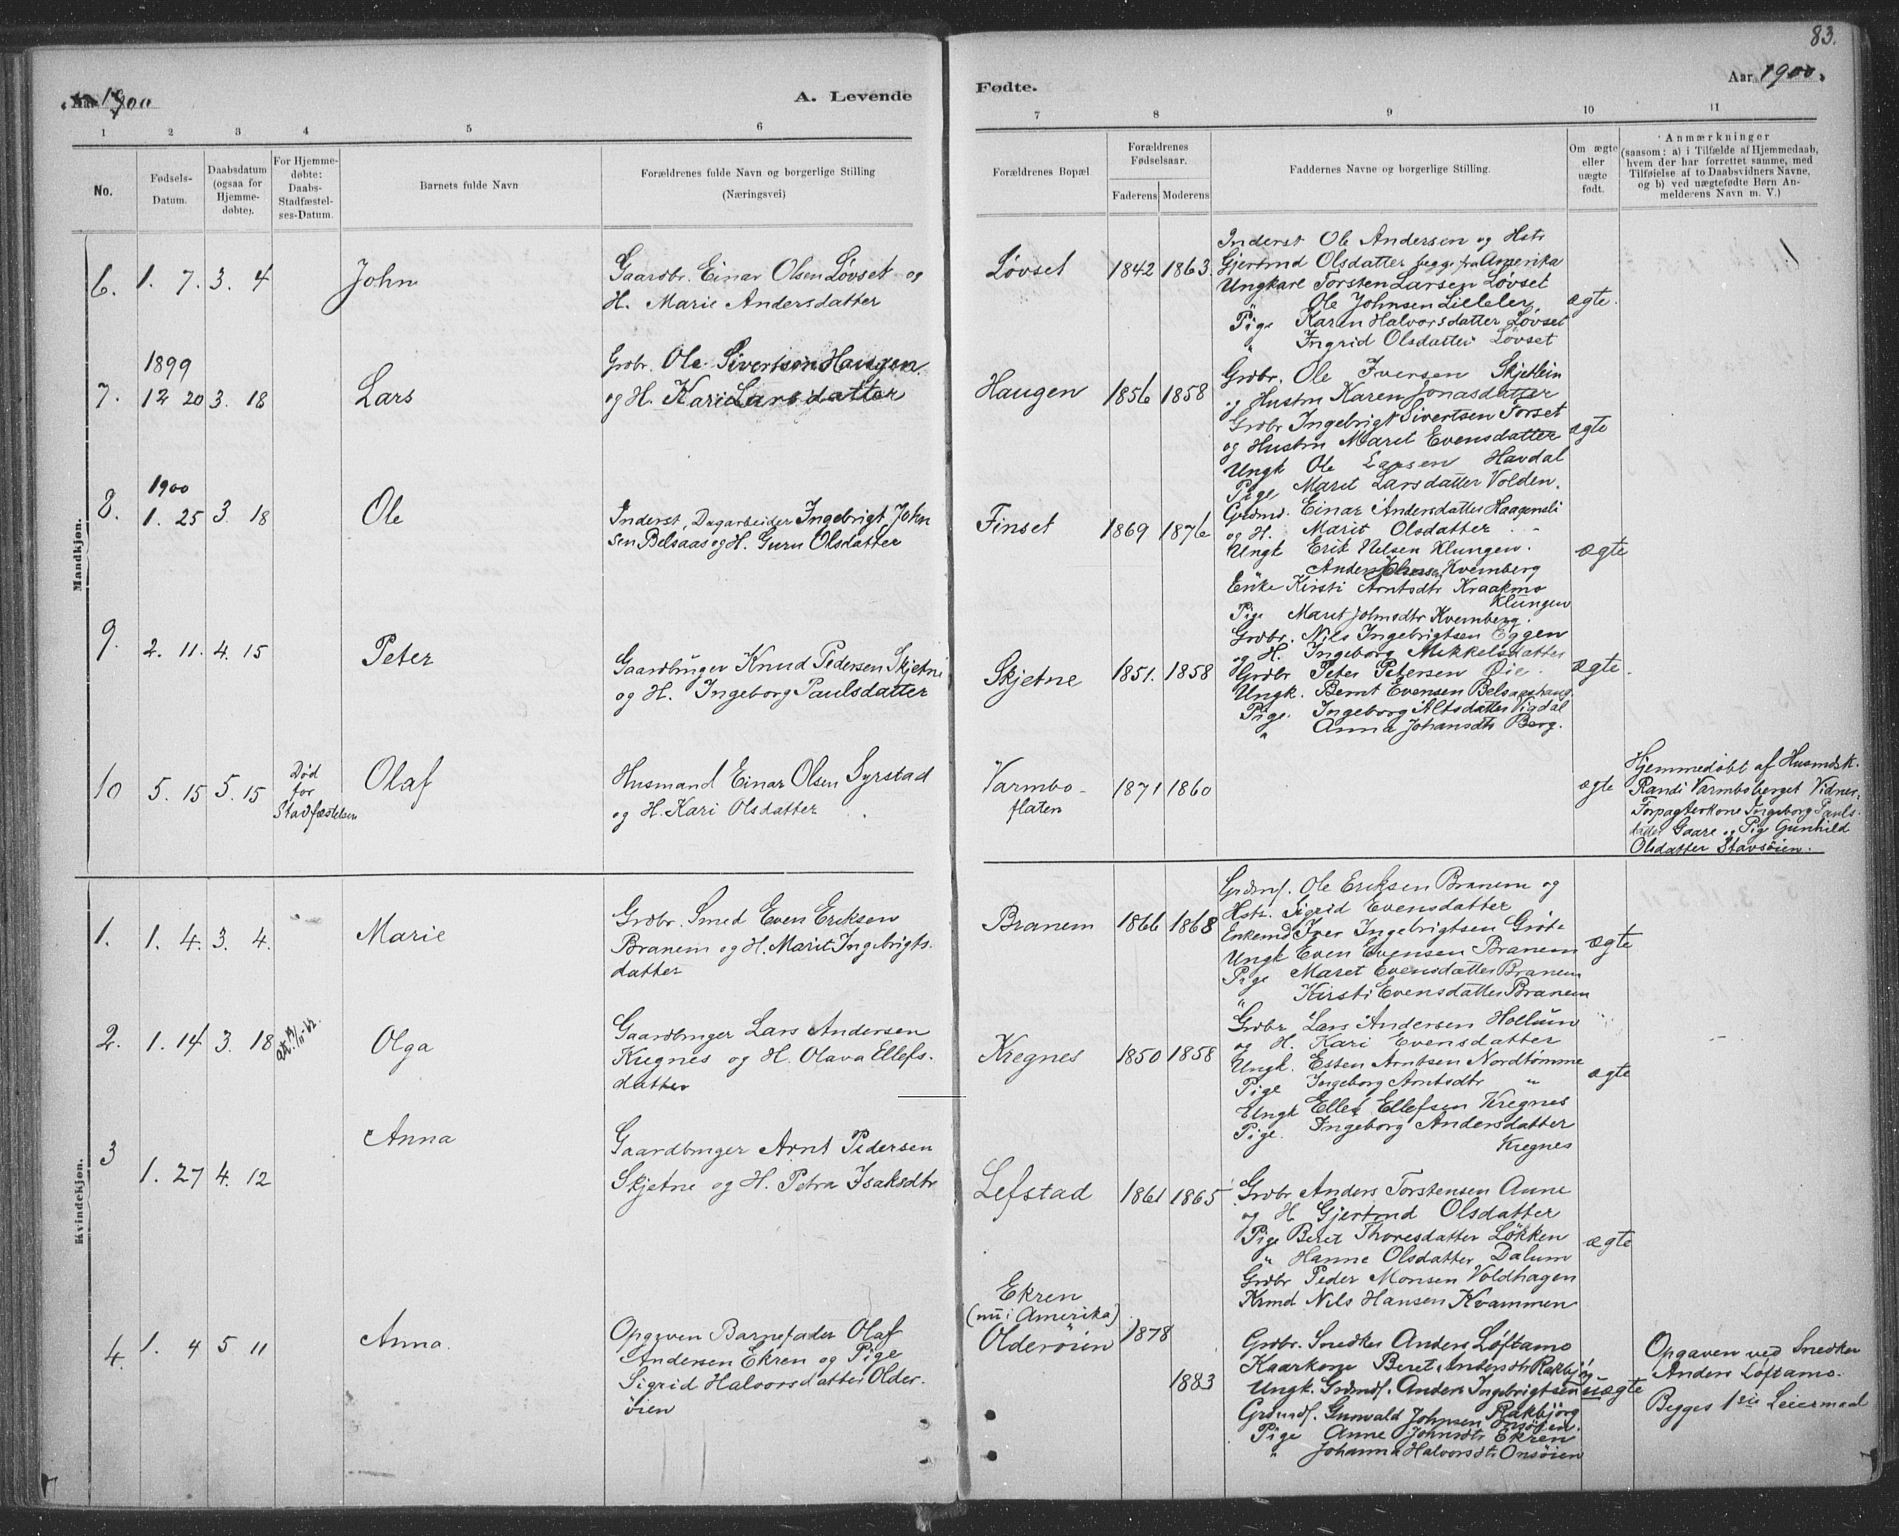 83.
Aar 1900
A. Levende
Fødte.
Aar 1900.
1 2 3 4 5 6 7 8 9 10 11
No.
Fødsels-
Datum.
Daabsdatum
(ogsaa for
Hjemme-
døbte).
For Hjemme-
døbte:
Daabs-
Stadfæstel-
ses-Datum.
Barnets fulde Navn
Forældrenes fulde Navn og borgerlige Stilling
(Næringsvei)
Forældrenes Bopæl.
Forældrenes
Fødselsaar.
Faderens Moderens
Faddernes Navne og borgerlige Stilling.
Om ægte
eller
uægte
født.
Anmærkninger
(saasom: a) i Tilfælde af Hjemmedaab,
hvem der har forrettet samme, med
Tilføielse af to Daabsvidners Navne,
og b) ved uægtefødte Børn An-
melderens Navn m. V.)
Mandkjøn.
6. 1. 7. 3. 4 John
Gaardbr. Einar Olsen Løvset og
H. Marie Andersdatter
Løvset 1842 1863.
Inderst Ole Andersen og Hstr
Gjertrud Olsdatter begge fra Amerika
Ungkarl Torsten Larsen Løvset
" Ole Johnsen Lilleler
Pige Karen Halvorsdatter Løvset
" Ingrid Olsdatter Løvset
ægte.
7. 1899
12 20 3. 18 Lars
Grdbr. Ole Sivertsen Haugen
og H. Kari Larsdatter
Haugen 1856 1858
Grdbr. Ole Iversen Skjetlein
og Hustru Karen Jonasdatter
Grdbr Ingebrigt Sivertsen Torset
og Hustru Marit Evensdatter
Ungk Ole Larsen Havdal
Pige Maret Larsdatter Volden.
ægte
8. 1900
1. 25 3. 18 Ole
Inderst, Dagarbeider Ingebrigt John
sen Belsaas og H. Guru Olsdatter
Finset 1869 1876
Grdmd. Einar Andersdatter Haagensli
og H. Marit Olsdatter
Ungk Erik Nelsen Klungen.
Anders Kvernberg
Enke Kirsti Arntsdtr Kraakmo
Klungen
Pige Marit Johnsdtr Kvernberg.
ægte
9. 2. 11. 4. 15 Peter
Gaardbruger Knud Pedersen Skjetne
og H. Ingeborg Paulsdatter
Skjetne 1851. 1858
Grdbr. Nils Ingebrigtsen Eggen
og H. Ingeborg Mikkelsdatter
Grdbr Peter Petersen Øie
Ungk. Bernt Evensen Belsaashaug
Pige. Ingeborg Altsdatter Vigdal
" Anna Johansdtr Berg.
ægte.
10 5. 15 5. 15 Død
før
Stadfæstelsen
Olaf
Husmand Einar Olsen Syrstad
og H. Kari Olsdatter
Varmbo-
flaten
1871 1860
ægte
Hjemmedøbt af Husmdsk.
Randi Varmboberget Vidner
Forpagterkone Ingeborg Pauls-
datter Gaare og Pige Gunhild
Olsdatter Stavsøien.
Kvindekjøn.
1. 1. 4. 3. 4. Marie
Grdbr. Smed Even Eriksen
Branem og H. Marit Ingebrigts-
datter
Branem 1866 1868
Grdmd. Ole Eriksen Branem og
Hstr. Sigrid Evensdatter
Enkemd Iver Ingebrigtsen Grøte
Ungk Even Evensen Branem
Pige Maret Evensdatter Branem
" Kirsti Evensdatter Branem
ægte
2. 1. 14 3. 18 Olga
Gaardbruger Lars Andersen
Kregnes og H. Olava Ellefs-
datter
Kregnes 1850 1858
Grdbr Lars Andersen Hollum
og H. Kari Evensdatter
Ungk. Esten Arntsen Nordtømme
Pige Ingeborg Arntsdtr "
Ungk Ellef Ellefsen Kregnes
Pige. Ingeborg Andersdatter
Kregnes
ægte
3 1. 27 4. 12 Anna
Gaardbruger Arnt Pedersen
Skjetne og H. Petra Isaksdtr
Lefstad 1861 1865
Grdbr Anders Torstensen Aune
og H Gjertrud Olsdatter
Pige Beret Thoresdatter Løkken
" Hanne Olsdatter Dalum
Grdbr Peder Monsen Voldhagen
Krmd Nils Hansen Kvammen
ægte
4. 1. 4 5 11 Anna.
Opgiven Barnefader Olaf
Andersen Ekren og Pige
Sigrid Halvorsdatter Older-
øien
Ekren
(nu i Amerika)
Olderøien
1878
1883
Grdbr. Snedker Anders Løftamo
Kaarkone Beret Andersdtr Rakbjørg
Ungk. Grdmdf. Anders Ingebrigtsen
Grdmdf. Gunvald Johnsen Rakbjørg
Onsøien.
Pige Anne Johnsdtr Ekren
" Johanna Halvorsdtr Onsøien
uægte
Opgaven ved Snedker
Anders Løftamo.
Begges 1ste Leiermaal